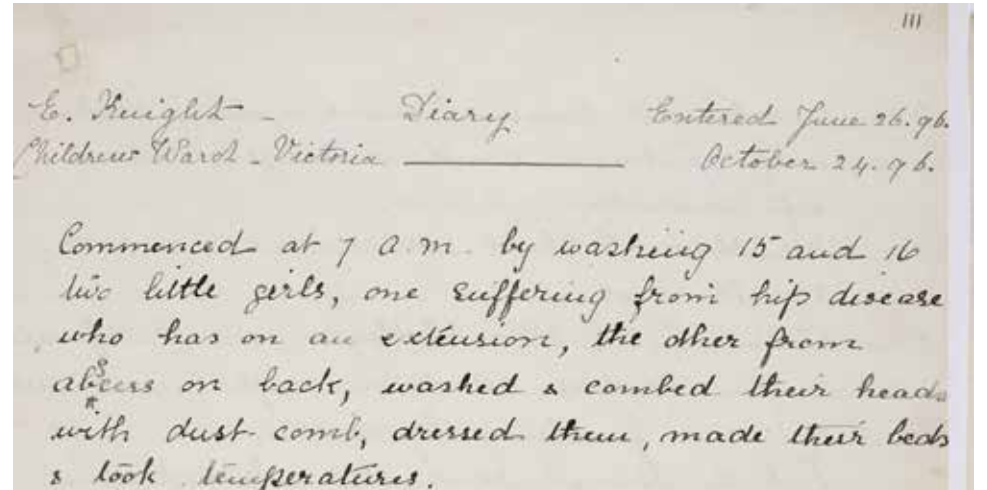 111
E. Knight - Diary Entered June 26.96.
Childrens Ward - Victoria October 24.96.
Commenced at 7 a.m. by washing 15 and 16
two little girls, one suffering from hip disease
who has on an extension, the other from
abscess on back, washed & combed their heads
with dust comb, dressed them, made their beds
& took temperatures.